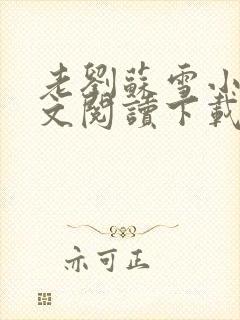 老劉蘇雪小
文閱讀下載
亦可正